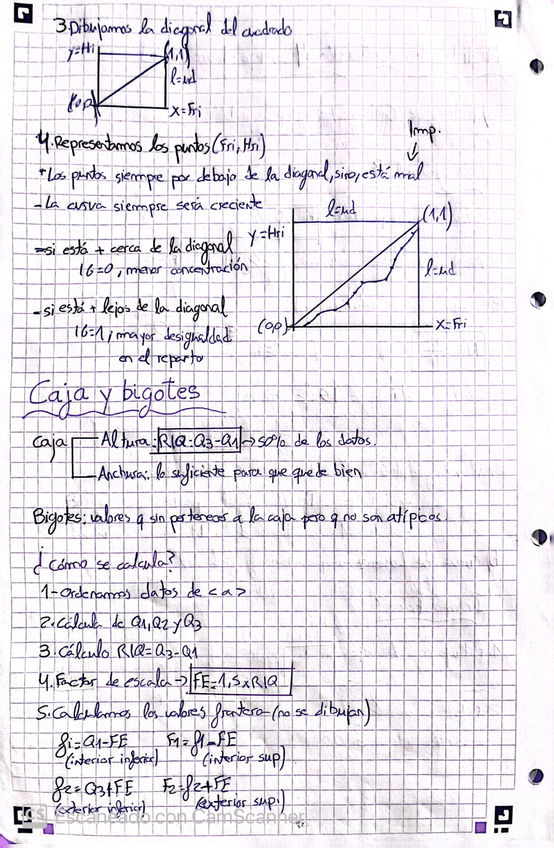 3. Dibujamos la diagonal del cuadrado
y=Hi
(1,1)
l=ud
(0,0)
x=Fri
4. Representamos los puntos (Fri, Hri)
Imp.
*Los puntos siempre por debajo de la diagonal, sino, está mal
- La curva siempre será creciente
l=ud
(1,1)
y=Hri
=si está + cerca de la diagonal
IG=0, menor concentración
l=ud
- si está + lejos de la diagonal
(0,0)
x=Fri
IG=1, mayor desigualdad
en el reparto
Caja y bigotes
Caja
Altura: RIQ=Q3-Q1 → 50% de los datos.
Anchura: lo suficiente para que quede bien
Bigotes: valores q sin pertenecer a la caja pero q no son atípicos.
¿Cómo se calcula?
1-Ordenamos datos de < a >
2. Cálculo de Q1, Q2 y Q3
3. Cálculo RIQ=Q3-Q1
4. Factor de escala → FE=1,5xRIQ
5. Calculamos los valores frontera (no se dibujan)
f1=Q1-FE F1=f1-FE
(interior inferior) (interior sup)
f2=Q3+FE F2=f2+FE
(exterior inferior) (exterior sup.)
CS Escaneado con CamScanner